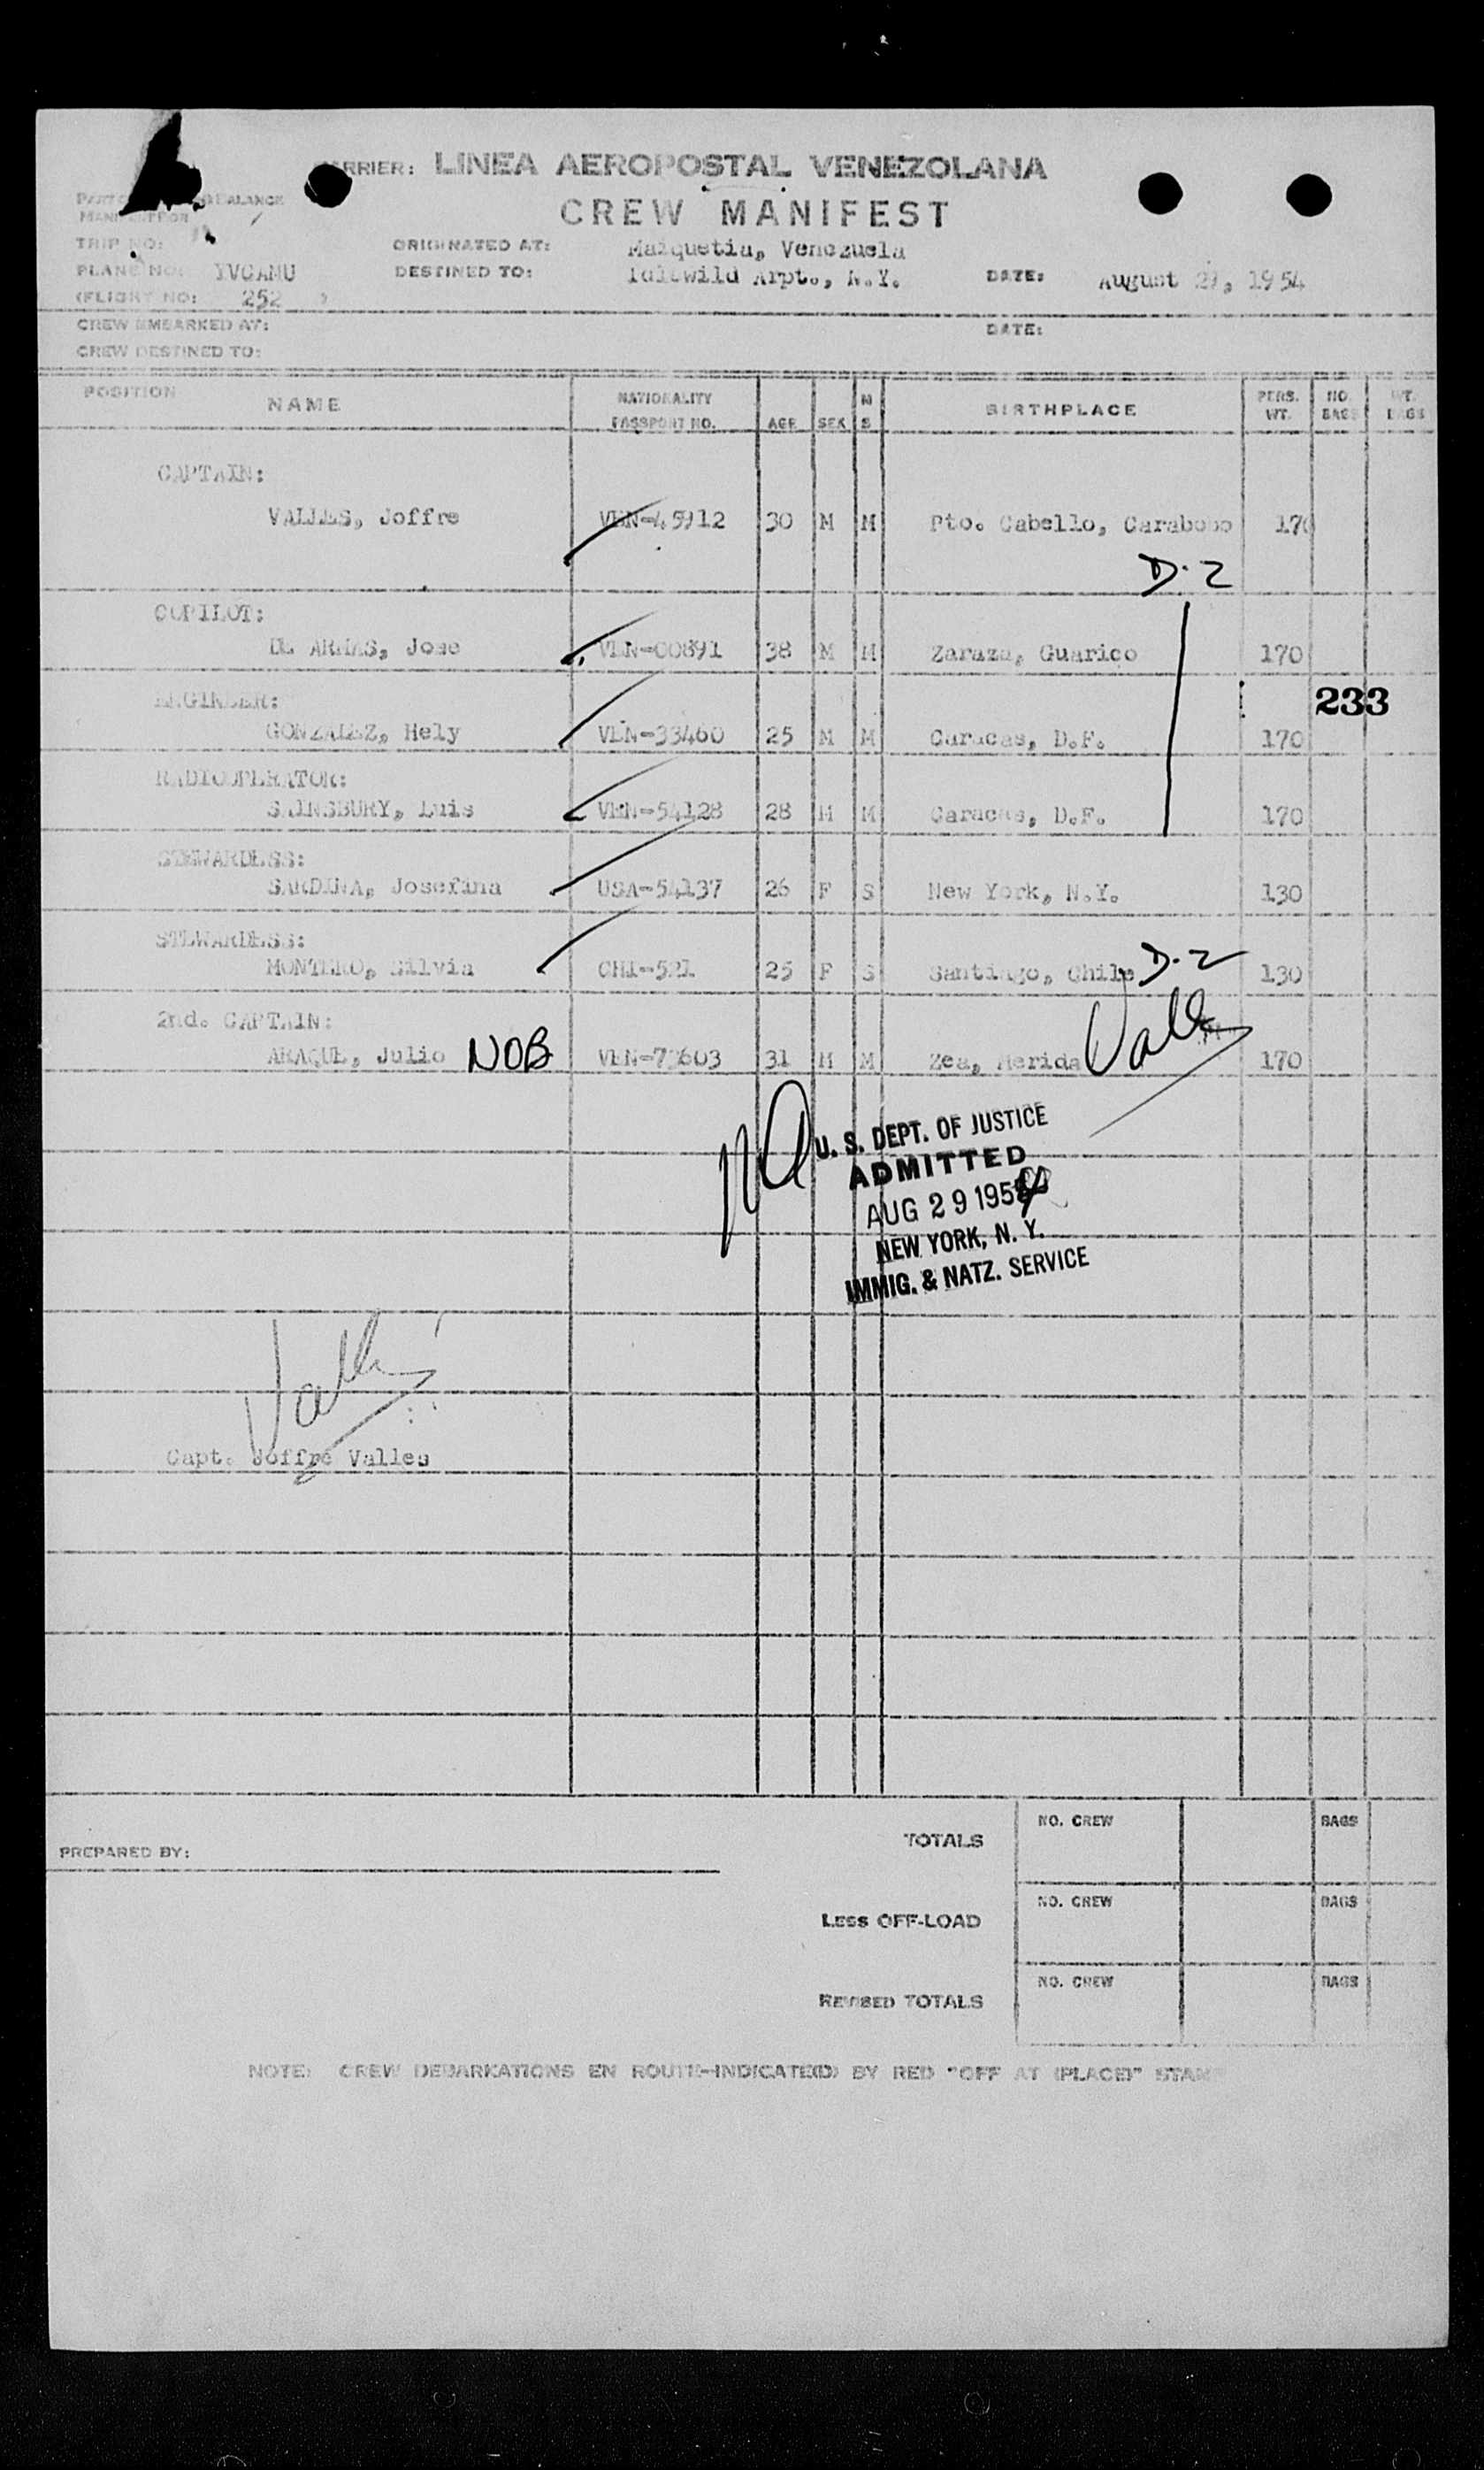 CARRIER: LINEA AEROPOSTAL VENEZOLANA
CREW MANIFEST
TRIP NO:
ORIGINATED AT: Maiquetia, Venezuela
PLANE NO: YVCAMU
DESTINED TO: Idlewild Arpt., N.Y.
DATE: August 29, 1954
(FLIGHT NO: 252 )
CREW EMBARKED AT:
DATE:
CREW DESTINED TO:
POSITION NAME NATIONALITY PASSPORT NO. AGE SEX M S BIRTHPLACE PERS. WT. NO. BAGS WT. BAGS
CAPTAIN:
VALLES, Joffre VEN-45912 30 M M Pto. Cabello, Carabobo 170
D-2
COPILOT:
DE ARMAS, Jose VEN-00891 38 M M Zaraza, Guarico 170
233
ENGINEER:
GONZALEZ, Hely VEN-33460 25 M M Caracas, D.F. 170
RADIOOPERATOR:
SAINSBURY, Luis VEN-54128 28 M M Caracas, D.F. 170
STEWARDESS:
SARDINA, Josefina USA-54137 26 F S New York, N.Y. 130
STEWARDESS:
MONTERO, Silvia CHI-521 25 F S Santiago, Chile D-2 130
2nd. CAPTAIN:
ARAQUE, Julio NOB VEN-73603 31 M M Zea, Merida Valles 170
U. S. DEPT. OF JUSTICE
ADMITTED
AUG 29 1954
NEW YORK, N. Y.
IMMIG. & NATZ. SERVICE
Valles
Capt. Joffre Valles
PREPARED BY:
TOTALS NO. CREW BAGS
LESS OFF-LOAD NO. CREW BAGS
REVISED TOTALS NO. CREW BAGS
NOTE: CREW DEBARKATIONS EN ROUTE-INDICATE(D) BY RED "OFF AT (PLACE)" STAMP